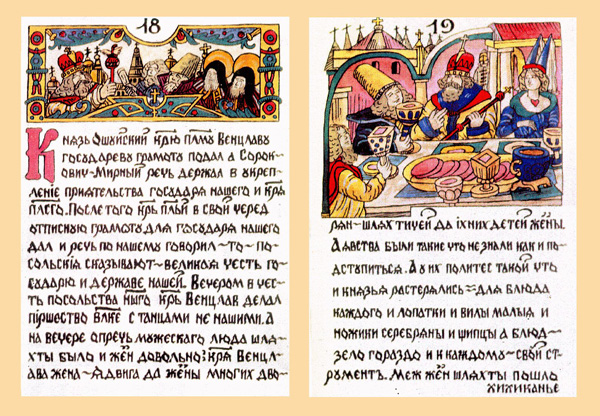 18
Князь Ошуйский крю плму Венцлаву
государеву грамоту подал а Сорок-
ович-Мирный речь держал в укреп-
ленiе прiятельства государя нашего и кря
плего. После того крь плый в свой черед
отписную грамоту для государя нашего
дал и речь по нашему говорил – то – по-
сольскiя сказывают – великая честь го-
сударю и державе нашей. Вечером в чес-
ть посольства ншго крь Венцлав делал
пiршество блже с танцами не нашими. А
на вечере опречь мужескаго люда шля-
хты было и жен довольно: кря Венцл-
ава жена – Ядвига да жены многих дво-
19
рян – шляхтичей да iхних детей жены.
А явства были такие что не знали как и по-
дступиться. А у их политес такой что
и князья растерялись – для блюда
каждого и лопатки и вилы малыя и
ножики серебряны и шипцы а блюд –
зело гораздо и к каждому – свой ст-
румент. Меж жен шляхты пошло
хихиканье